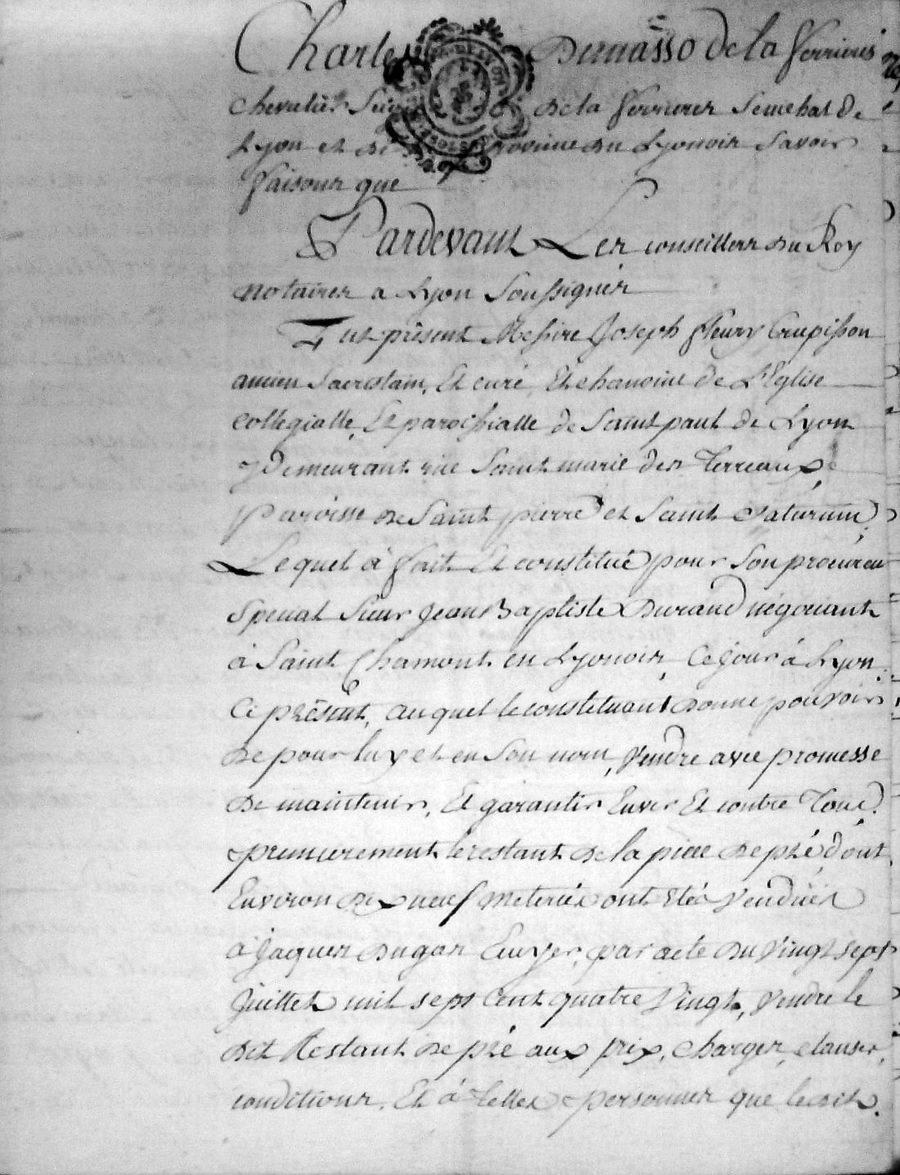 Charles Dumasso de la fferrieres
chevalier de la fferrieres Senechal de
Lyon et de province du Lyonois Savoir
ffaisons que
Pardevant Les conseillers du Roy
Notaires a Lyon Soussignés
Fut présent Messire Joseph fleury Crupisson
ancien Sacristain, Et curé, Et chanoine de L'Eglise
collegialle, Et paroissialle de Saint paul de Lyon
y Demeurant rue Saint marie des Terreaux
paroisse de Saint pierre et Saint Saturnin
Lequel à ffait Et constitué pour Son procureur
special Sieur Jean Baptiste Durand négociant
à Saint Chamont en Lyonois, ce jour à Lyon
ce présent, auquel le constituant donne pouvoir
de pour luy et en Son nom, Vendre avec promesse
de maintenir, Et garantir Envers Et contre Tous
premierement le restant de la piece de pré, dont
Environ de neuf meterées ont Etés Vendües
à Jaques dugas Ecuyer, par acte du Vingt sept
Juillet mil sept cent quatre Vingt, Vendre le
dit Restant de pré aux prix, charges, clauses,
conditions, Et à telles personnes que le dit